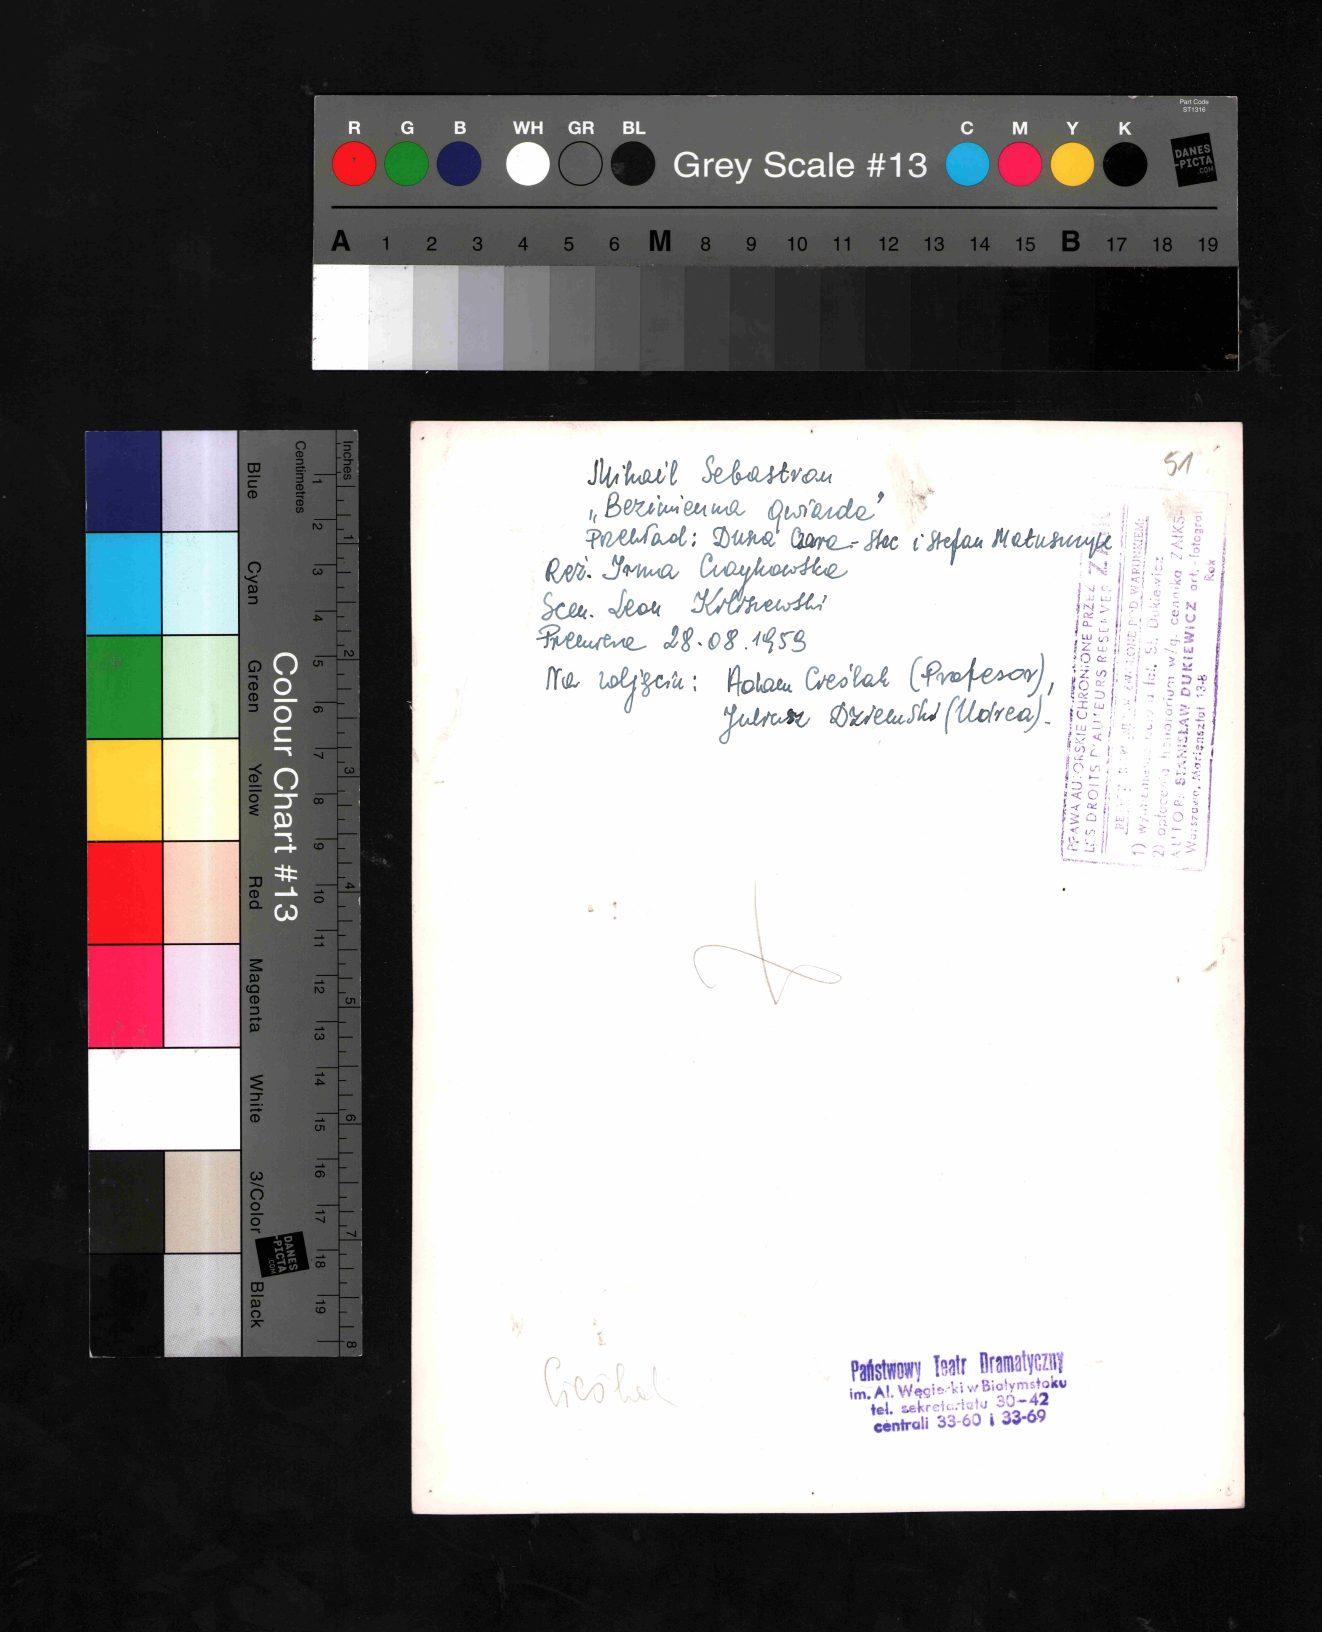 Part Code
ST1316
R G B WH GR BL
Grey Scale #13
C M Y K
DANES
-PICTA
.COM
A 1 2 3 4 5 6 M 8 9 10 11 12 13 14 15 B 17 18 19
Colour Chart #13
Blue
Cyan
Green
Yellow
Red
Magenta
White
3/Color
Black
Centimetres
1 2 3 4 5 6 7 8 9 10 11 12 13 14 15 16 17 18 19
Inches
1 2 3 4 5 6 7 8
DANES
-PICTA
.COM
51
Mihail Sebastian
„Bezimienna gwiazda"
Przekład: Dusza Czara-Stec i Stefan Matuszczyk
Reż. Irma Czaykowska
Scen. Leon
Premiera 28.08.1959
Na zdjęciu: Adam Cieślak (Profesor),
Juliusz Dziemski (Udrea).
PRAWA AUTORSKIE CHRONIONE PRZEZ
LES DROITS D'AUTEURS RESERVES
POD WARUNKIEM:
1) St. Dukiewicz
2) opłacenia honorarium w/g. cennika ZAIKS
AUTOR: STANISŁAW DUKIEWICZ art.-fotograf
Warszawa, Mariensztat 13-8 Rok
Cieślak
Państwowy Teatr Dramatyczny
im. Al. Węgierki w Białymstoku
tel. sekretariatu 30-42
centrali 33-60 i 33-69